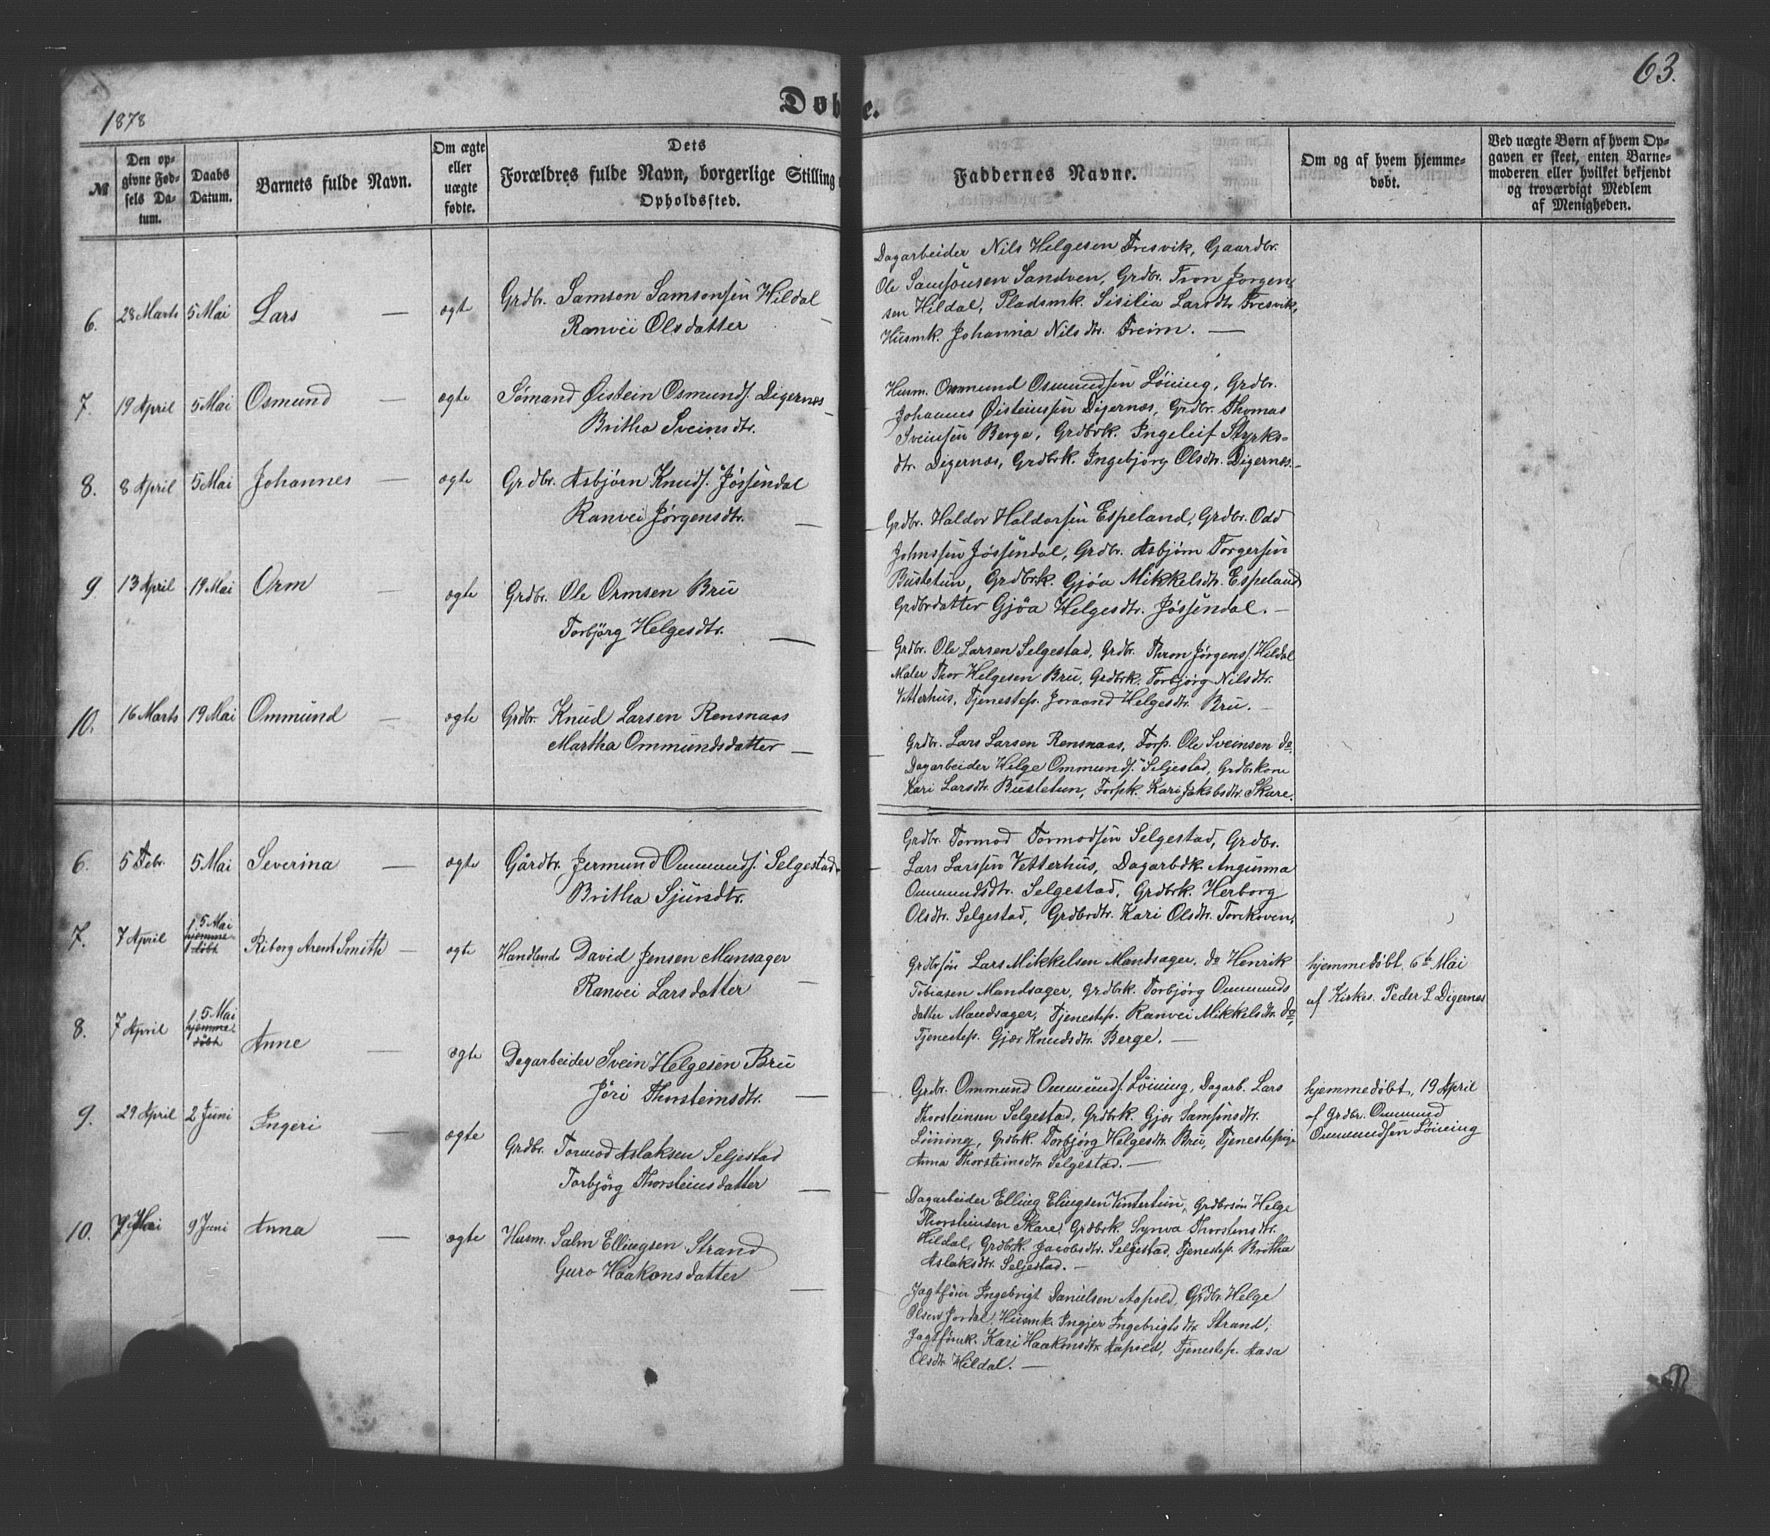 1878
63.
Døbte.
№
Den opgivne Fødsels Datum.
Daabs Datum.
Barnets fulde Navn.
Om ægte eller uægte fødte.
Dets Forældres fulde Navn, borgerlige Stilling
Opholdssted.
Faddernes Navne.
Om og af hvem hjemmedøbt.
Ved uægte Børn af hvem Opgaven er skeet, enten Barnemoderen eller hvilket bekjendt og troværdigt Medlem af Menigheden.
6. 28 Marts 5 Mai Lars — ægte Grdbr. Samson Samsonsen Hildal
Ranvei Olsdatter —
Dagarbeider Nils Helgesen Fresvik, Gaardbr.
Ole Samsonsen Sandven, Grdbr. Tron Jørgen-
sen Hildal, Pladsmk. Sisilia Larsdtr. Fresvik,
Husmk. Johanna Nilsdtr. Freim. —
7. 19 April 5 Mai Osmund — ægte Sømand Øistein Osmunds. Digernæs
Britha Sveinsdtr. —
Husm. Osmund Osmundsen Løining, Grdbr.
Johannes Øisteinsen Digernæs, Grdbr. Thomas
Sveinsen Berge, Grdbrk. Ingeleif Styrks-
dtr. Digernæs, Grdbrk. Ingebjørg Olsdtr. Digernæs.
8. 8 April 5 Mai Johannes — ægte Grdbr. Asbjørn Knuds. Jøssendal
Ranvei Jørgensdtr. —
Grdbr. Haldor Haldorsen Espeland, Grdbr. Odd
Johnssen Jøssendal, Grdbr. Asbjørn Torgersen
Bustetun, Grdbrk. Gjøa Mikkelsdtr. Espeland
Grdbrdatter Gjøa Helgesdtr. Jøssendal. —
9. 13 April 19 Mai Orm — ægte Grdbr. Ole Ormsen Bru
Torbjørg Helgesdtr. —
Grdbr. Ole Larsen Selgestad, Grdbr. Thron Jørgens. Hildal
Maler Thor Helgesen Bru, Grdbrk. Torbjørg Nilsdtr.
Vetterhus, Tjenestep. Joraand Helgesdtr. Bru. —
10. 16 Marts 19 Mai Ommund — ægte Grdbr. Knud Larsen Rensnaas
Martha Ommundsdatter —
Grdbr. Lars Larsen Rensnaas, Forp. Ole Sveinsen do.
Dagarbeider Helge Ommunds. Seljestad, Grdbrkone
Kari Larsdtr. Bustetun, Forpk. Kari Jakobsdtr. Skare.
6. 5 Febr. 5 Mai Severina — ægte Gårdbr. Jermund Ommunds. Selgestad
Britha Sjursdtr.
Grdbr. Tormod Tormodsen Selgestad, Grdbr.
Lars Larssen Vetterhus, Dagarbdk. Angunna
Ommundsdtr. Selgestad, Grdbrk. Herborg
Olsdtr. Selgestad, Grdbrdtr. Kari Olsdtr.
7. 7 April 5 Mai hjemmedøbt Riborg Arent Smith — ægte Handlende David Jensen Mansager
Ranvei Larsdatter —
Grdbrsøn Lars Mikkelsen Mandsager, do Henrik
Tobiasen Mandsager, Grdbrk. Torbjørg Ommunds
datter Mandsager, Tjenestep. Ranvei Mikkelsdtr. do,
Tjenestep. Gjær Knudsdtr. Berge. —
hjemmedøbt 6te Mai
af Kirkes. Peder S. Digernæs
8. 7 April 5 Mai hjemmedøbt Anne — ægte Dagarbeider Svein Helgesen Bru
Jöri Thorsteinsdtr. —
Grdbr. Ommund Ommunds. Löining, Dagarb. Lars
Thorsteinsen Selgestad, Grdbrk. Gjær Samsonsdtr.
Löining, Grdbrk. Torbjørg Helgesdtr. Bru, Tjenestepige
Anna Thorsteinsdtr. Selgestad. —
hjemmedøbt, 19 April
af Grdbr. Ommund
Ommundsen Löining
9. 29 April 2 Juni Ingeri — ægte Grdbr. Tormod Aslaksen Seljestad
Torbjørg Thorsteinsdatter —
Dagarbeider Elling Elingsen Vintertun, Grdbrsön Helge
Thorsteinsen Skare, Grdbrk. Synva Thorstensdtr.
Hildal, Grdbrk. Jacobsdtr. Seljestad, Tjenestep. Britha
Aslaksdtr. Seljestad. —
10. 7 Mai 9 Juni Anna — ægte Husm. Salm Ellingsen Strand
Guro Haakonsdatter —
Jagtfører Ingebrigt Danielsen Aapold, Grdbr. Helge
Olsen Jordal, Husmk. Ingjer Ingebrigtsdtr. Strand,
Jagtførerk. Kari Haakonsdtr. Aapold, Tjenestep. Aasa
Olsdtr. Hildal. —